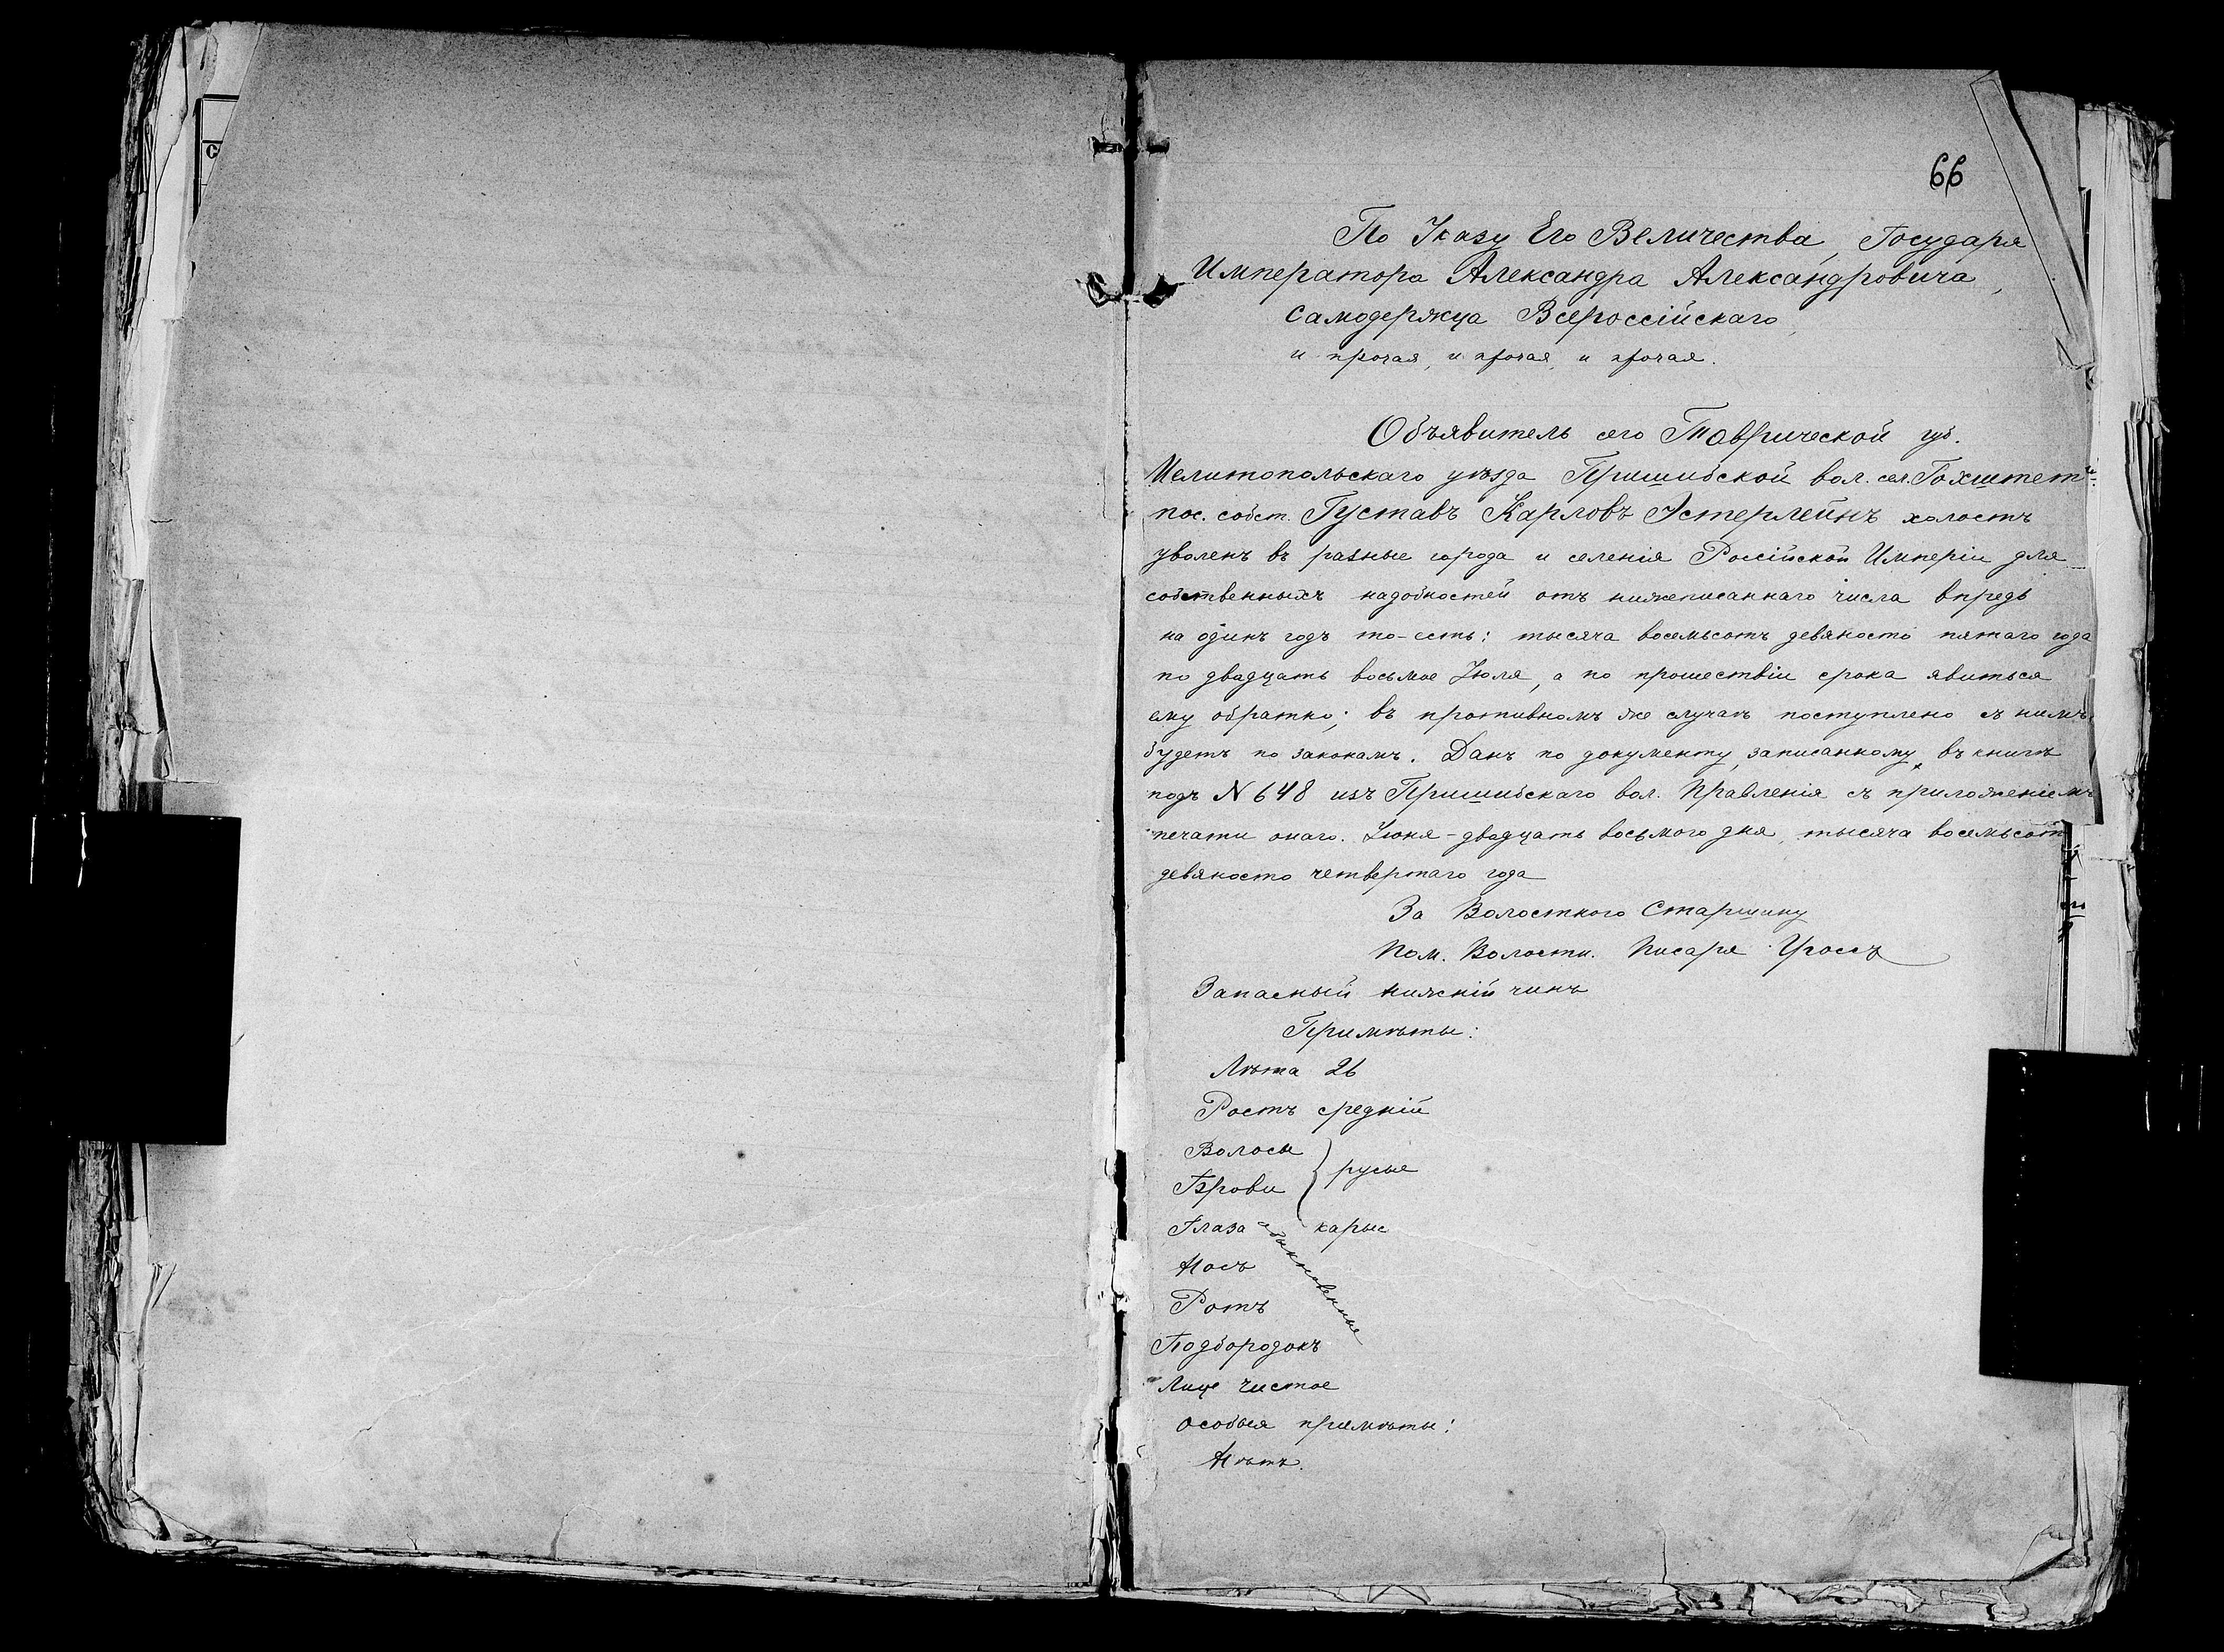 66
По Указу Его Величества, Государя
Императора Александра Александровича,
Самодержца Всероссійскаго,
и прочая, и прочая, и прочая.
Объявитель сего Таврической губ.
Мелитопольскаго уѣзда Пришибской вол. сел. Гохштетъ
пос. собст. Густавъ Карловъ Эстерлейнъ холостъ
уволенъ въ разные города и селенія Россійской Имперіи для
собственныхъ надобностей отъ нижеписаннаго числа впредь
на одинъ годъ то-есть: тысяча восемьсотъ девяносто пятаго года
по двадцать восьмое Іюля, а по прошествіи срока явиться
ему обратно; въ противномъ же случаѣ поступлено съ нимъ
будетъ по законамъ. Данъ по документу, записанному въ книгѣ
подъ N 648 изъ Пришибскаго вол. Правленія съ приложеніемъ
печати онаго. Іюня - двадцать восьмого дня, тысяча восемьсотъ
девяносто четвертаго года
За Волостного Старшину
Пом. Волостн. Писаря
Запасный нижній чинъ
Примѣты:
Лѣта 26
Ростъ средній
Волосы
Брови } русые
Глаза карые
Носъ
Ротъ обыкновенные
Подбородокъ
Лице чистое
особыя примѣты:
Нѣтъ.